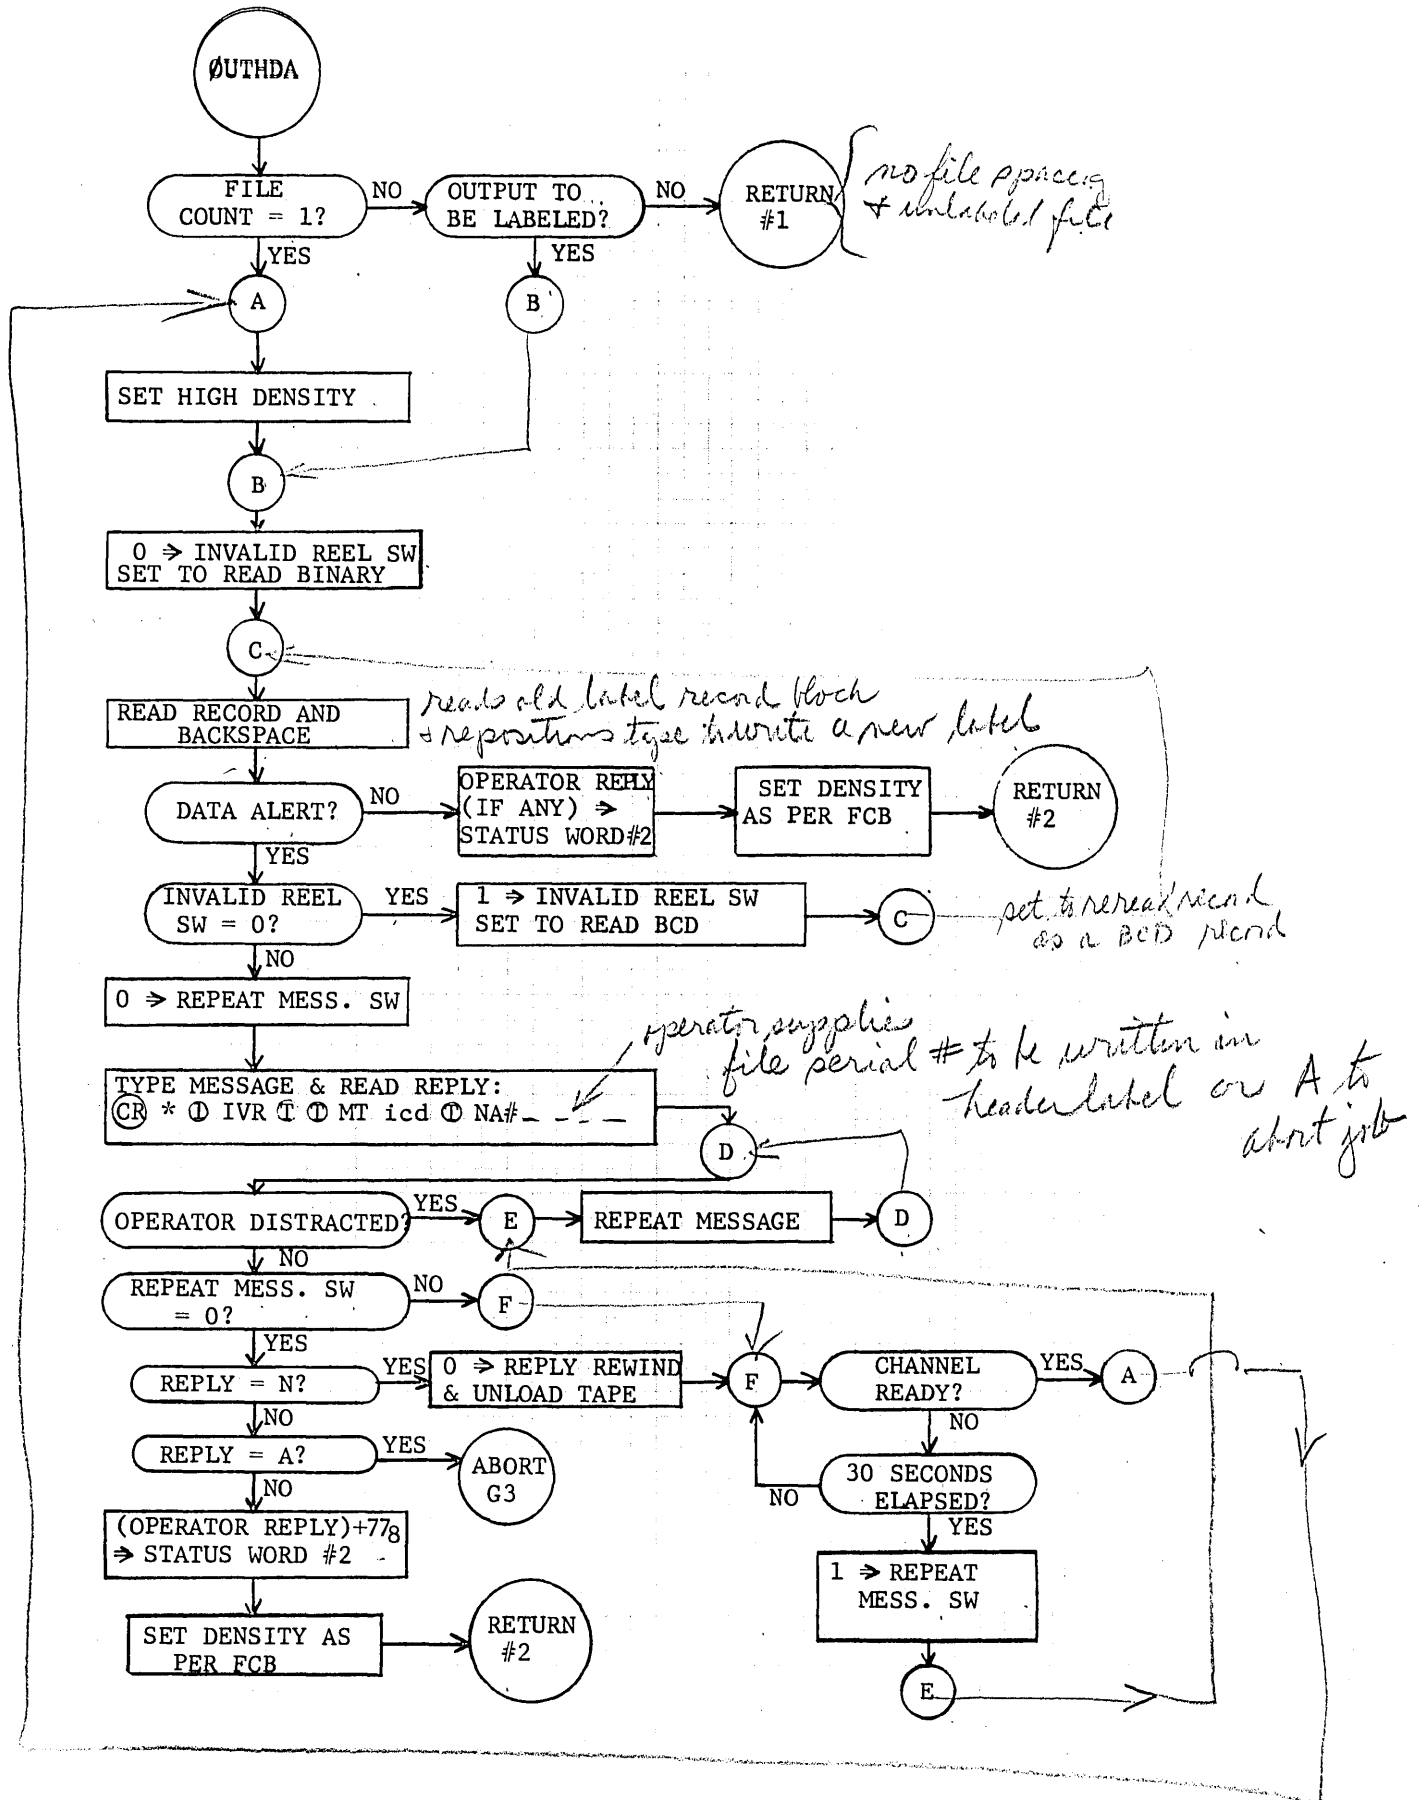 ØUTHDA
FILE
COUNT = 1?
NO
OUTPUT TO
BE LABELED?
NO
RETURN
#1
no file spacing
& unlabeled file
YES
YES
A
B
SET HIGH DENSITY
B
0 ⇒ INVALID REEL SW
SET TO READ BINARY
C
READ RECORD AND
BACKSPACE
reads old label record block
& repositions tape to write a new label
DATA ALERT?
NO
OPERATOR REPLY
(IF ANY) ⇒
STATUS WORD #2
SET DENSITY
AS PER FCB
RETURN
#2
YES
INVALID REEL
SW = 0?
YES
1 ⇒ INVALID REEL SW
SET TO READ BCD
C
set to reread record
as a BCD record
NO
0 ⇒ REPEAT MESS. SW
operator supplies
file serial # to be written in
header label or A to
abort job
TYPE MESSAGE & READ REPLY:
CR * Ⓘ IVR Ⓘ Ⓘ MT icd Ⓘ NA#_ _ _ _
D
OPERATOR DISTRACTED?
YES
E
REPEAT MESSAGE
D
NO
REPEAT MESS. SW
= 0?
NO
F
YES
REPLY = N?
YES
0 ⇒ REPLY REWIND
& UNLOAD TAPE
F
CHANNEL
READY?
YES
A
NO
NO
REPLY = A?
YES
ABORT
G3
30 SECONDS
ELAPSED?
NO
NO
YES
(OPERATOR REPLY)+77₈
⇒ STATUS WORD #2
1 ⇒ REPEAT
MESS. SW
SET DENSITY AS
PER FCB
RETURN
#2
E